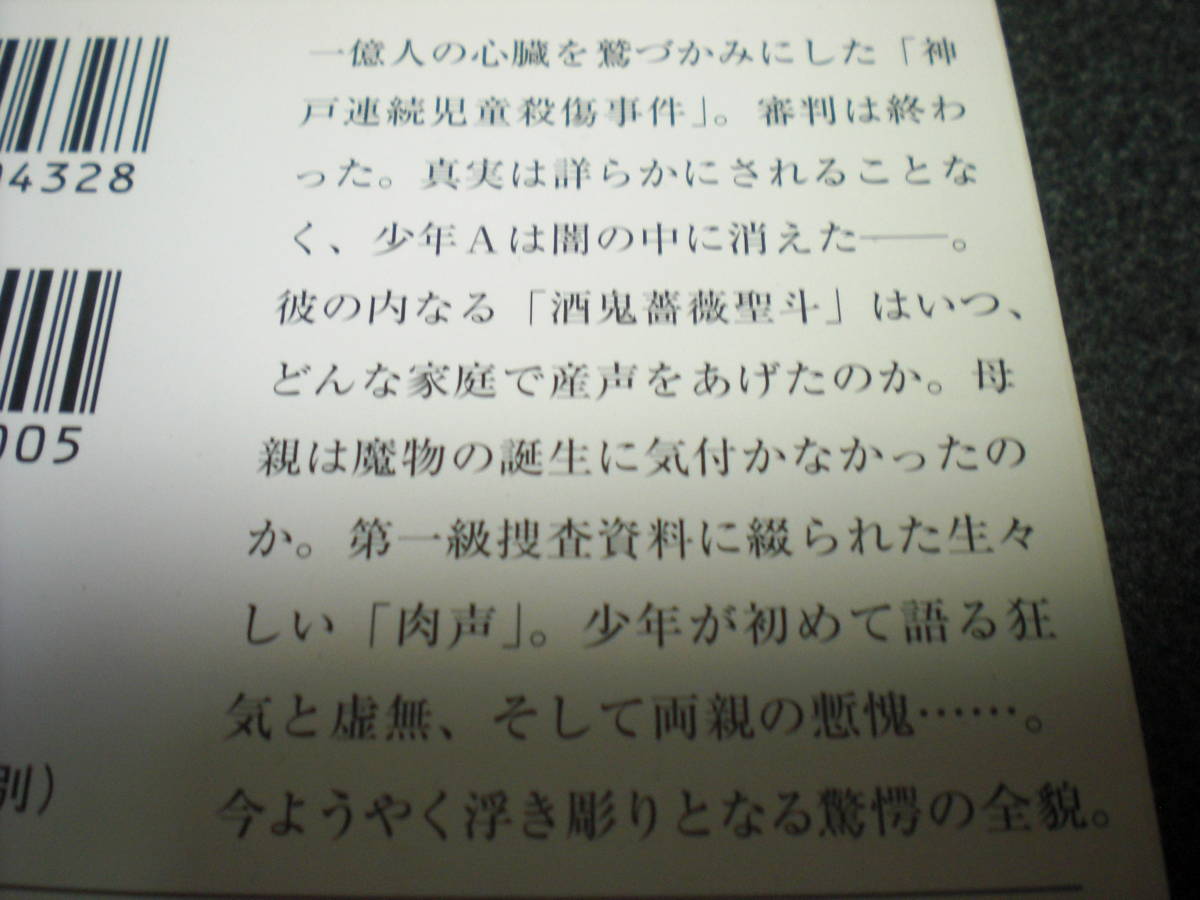 一億人の心臓を鷲づかみにした「神
戸連続児童殺傷事件」。審判は終わ
った。真実は詳らかにされることな
く、少年Aは闇の中に消えた——。
彼の内なる「酒鬼薔薇聖斗」はいつ、
どんな家庭で産声をあげたのか。母
親は魔物の誕生に気付かなかったの
か。第一級捜査資料に綴られた生々
しい「肉声」。少年が初めて語る狂
気と虚無、そして両親の慙愧……。
今ようやく浮き彫りとなる驚愕の全貌。
04328
005
別）